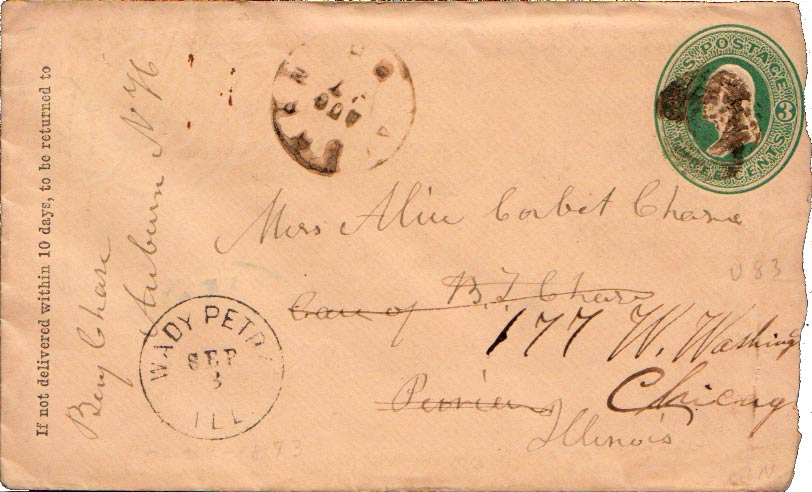 If not delivered within 10 days, to be returned to
Benj Chase
Auburn N H
U.S. POSTAGE
3
THREE CENTS
Miss Alice Corbet Chase
Care of B. F. Chase
177 W. Washing
Chicag
Illinois
WADY PETR
SEP
3
ILL
U 83